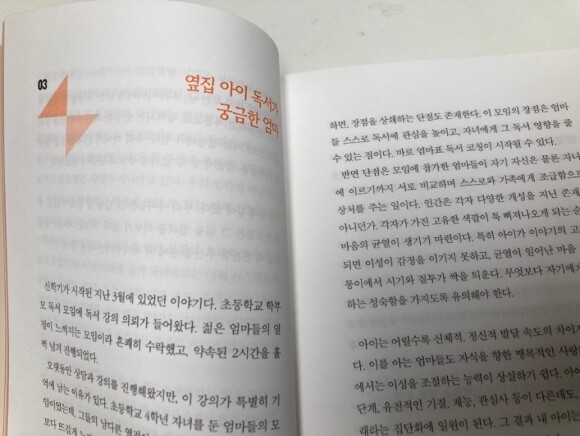 03
옆집 아이 독서가
궁금한 엄마
신학기가 시작된 지난 3월에 있었던 이야기다. 초등학교 학부
모 독서 모임에 독서 강의 의뢰가 들어왔다. 젊은 엄마들의 열
정이 느껴지는 모임이라 흔쾌히 수락했고, 약속된 2시간을 훌
쩍 넘겨 진행되었다.
오랫동안 상담과 강의를 진행해왔지만, 이 강의가 특별히 기
억에 남는 이유가 있다. 초등학교 4학년 자녀를 둔 엄마들의 모
임이었는데, 그들의 남다른
보다 뜨겁게
하면, 장점을 상쇄하는 단점도 존재한다. 이 모임의 장점은 엄마
들 스스로 독서에 관심을 높이고, 자녀에게 그 독서 영향을 줄
수 있는 점이다. 바로 엄마표 독서 코칭이 시작될 수 있다.
반면 단점은 모임에 참가한 엄마들이 자기 자신은 물론 자녀
에 이르기까지 서로 비교하며 스스로와 가족에게 조급함으
상처를 주는 일이다. 인간은 각자 다양한 개성을 지닌 존재
아니던가. 각자가 가진 고유한 색깔이 툭 삐져나오게 되는 순
마음의 균열이 생기기 마련이다. 특히 아이가 이야기의 고
되면 이성이 감정을 이기지 못하고, 균열이 일어난 마음
퉁이에서 시기와 질투가 싹을 틔운다. 무엇보다 자기에게
하는 성숙함을 가지도록 유의해야 한다.
아이는 어릴수록 신체적, 정신적 발달 속도의 차이가
다. 이를 아는 엄마들도 자식을 향한 맹목적인 사랑
에서는 이성을 조절하는 능력이 상실하기 쉽다. 아이
단계, 유전적인 기질, 재능, 관심사 등이 다른데도,
래라는 집단화에 일원이 된다. 그 결과 내 아이는